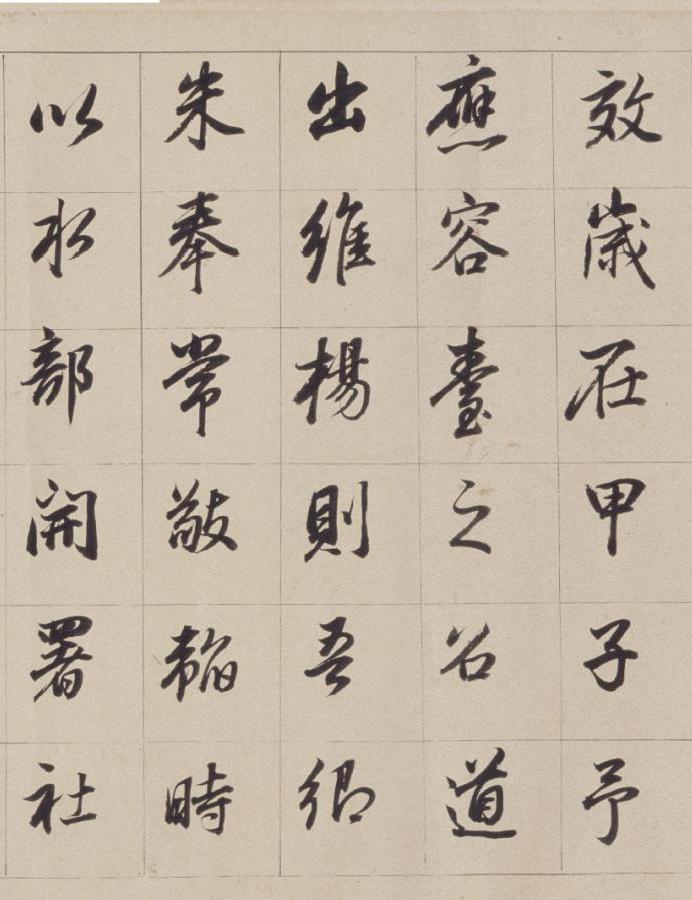 效歲在甲子予
應容臺之召道
出維楊則吾鄉
朱奉常敬韜時
以水部開署社